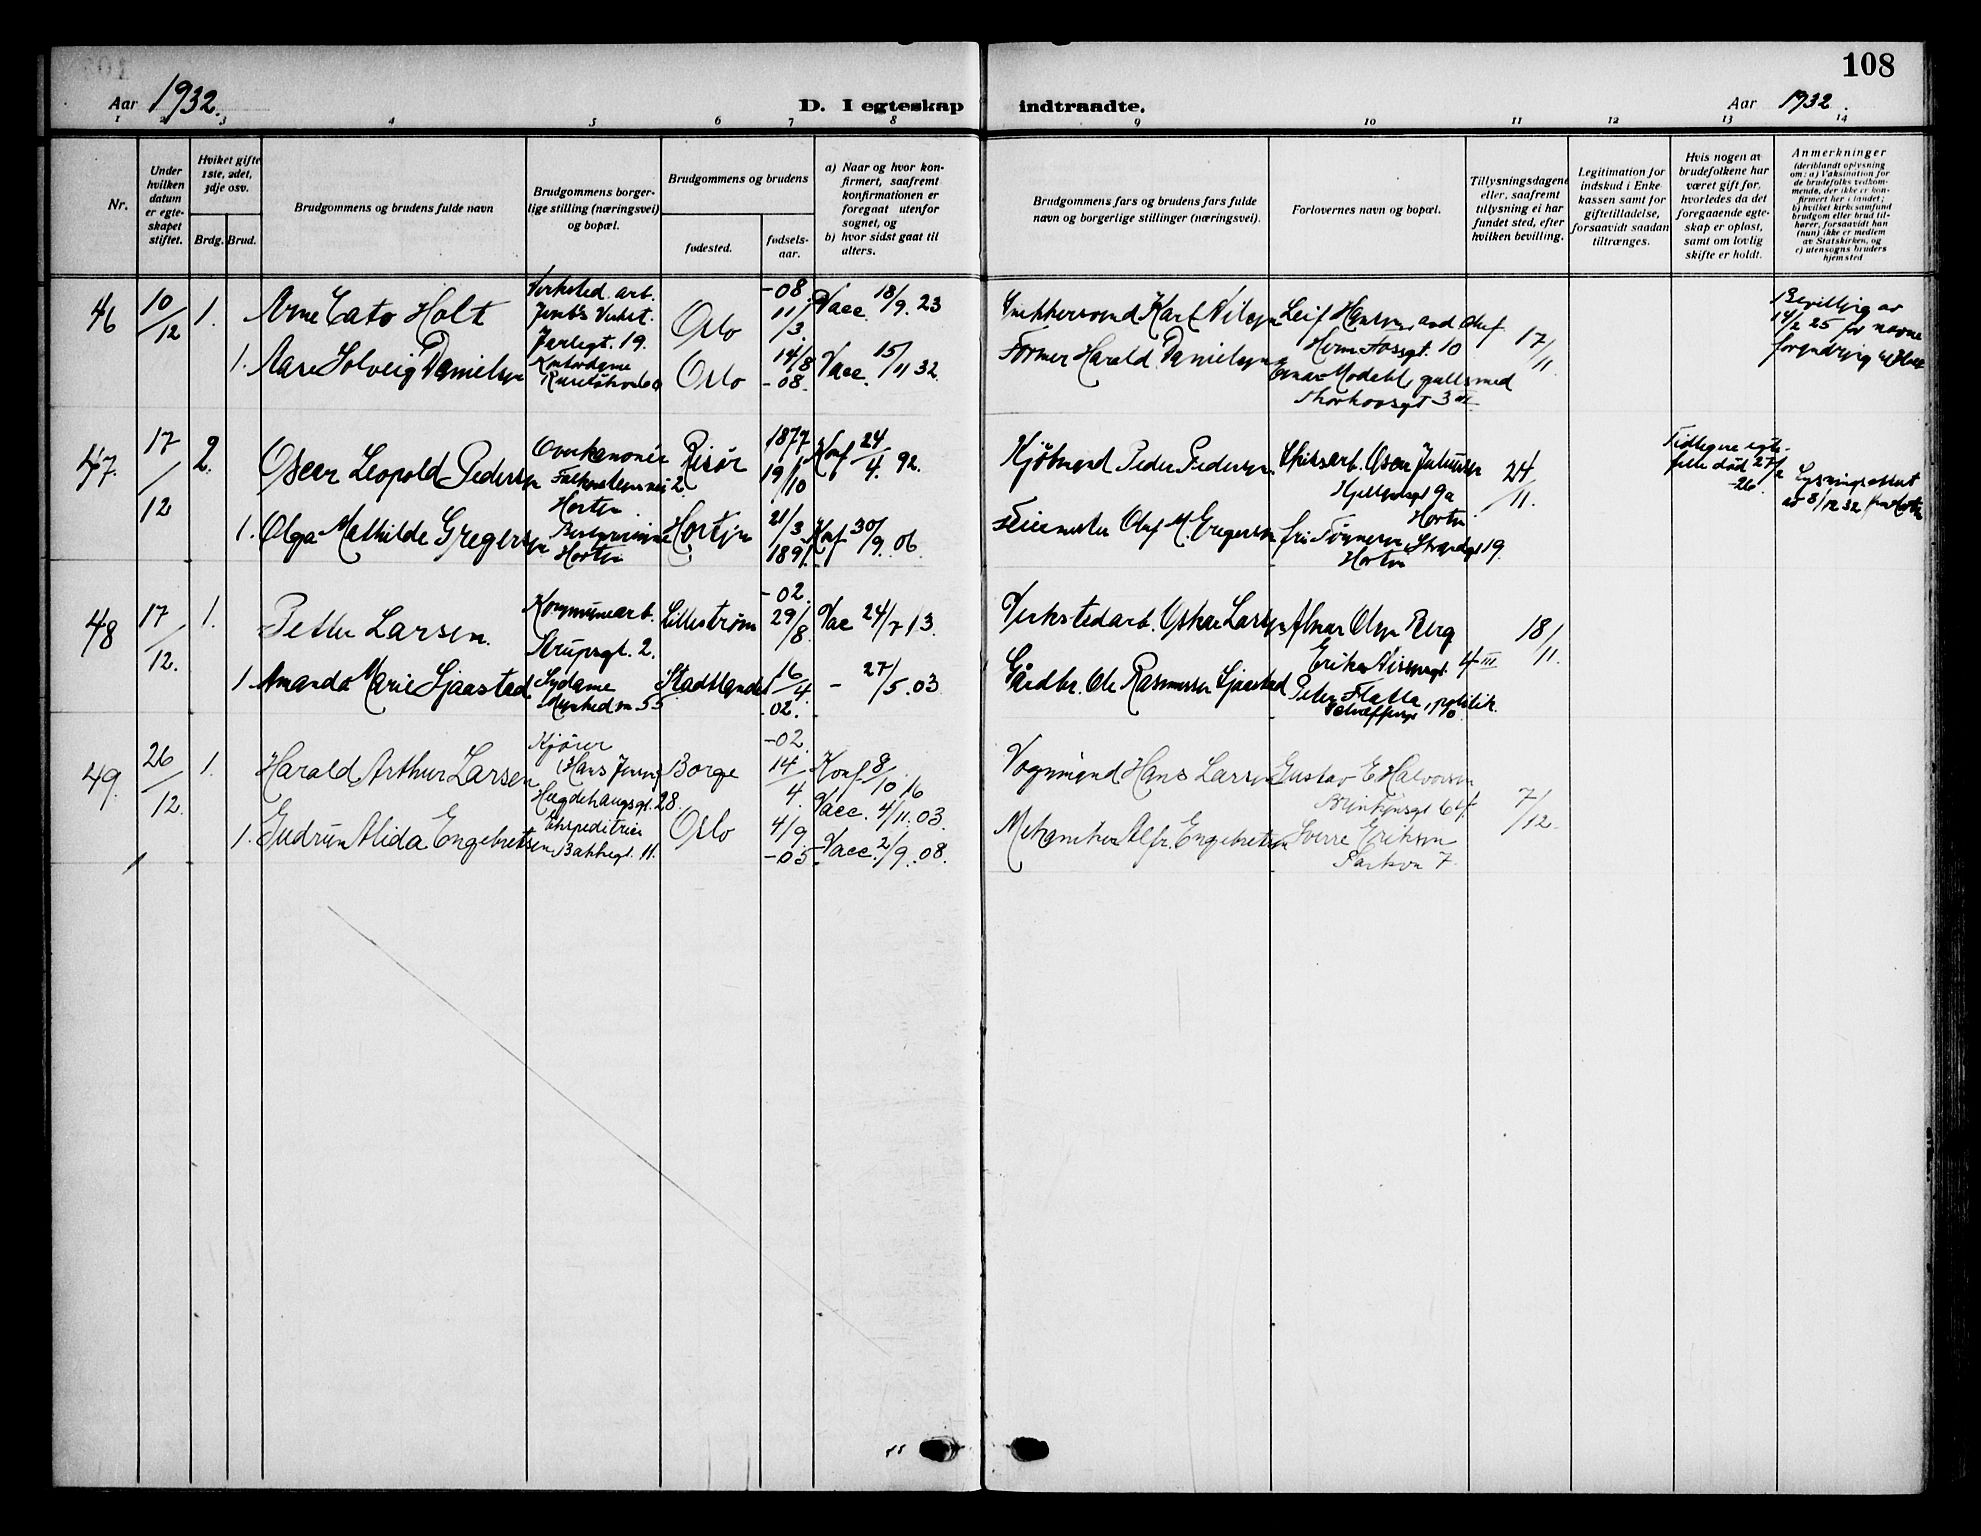 108
Aar 1932.
D. I egteskap indtraadte.
Aar 1932.
1 2 3 4 5 6 7 8 9 10 11 12 13 14
Nr.
Under hvilken datum er egteskapet stiftet.
Hviket gifte 1ste, 2det, 3dje osv.
Brdg. Brud.
Brudgommens og brudens fulde navn
Brudgommens borgerlige stilling (næringsvei) og bopæl.
Brudgommens og brudens
fødested.
fødselsaar.
a) Naar og hvor konfirmert, saafremt konfirmationen er foregaat utenfor sognet, og
b) hvor sidst gaat til alters.
Brudgommens fars og brudens fars fulde navn og borgerlige stillinger (næringsvei).
Forlovernes navn og bopæl.
Tillysningsdagene eller, saafremt tillysning ei har fundet sted, efter hvilken bevilling.
Legitimation for indskud i Enkekassen samt for giftetilladelse, forsaavidt saadan tiltrænges.
Hvis nogen av brudefolkene har været gift før, hvorledes da det foregaaende egteskap er opløst, samt om lovlig skifte er holdt.
Anmerkninger
(deriblandt oplysning om: a) Vaksination for de brudefolks vedkommende, der ikke er konfirmert her i landet; b) hvilket kirkesamfund brudgom eller brud tilhører, forsaavidt han (hun) ikke er medlem av Statskirken, og c) utensogns bruders hjemsted
46 10/12 1. Arne Cato Holt
Verksted. arb.
Jarlegt. 19.
Oslo
-08. 11/3.
Vacc. 18/9. 23
Snekkersvend Karl Nilsen
Herm Fossgt. 10
17/11
Bevilling av
14/2 25 for navne
1. Aase Solveig Danielsen
Kontordame
Oslo
14/8 -08.
Vacc. 15/11 32.
Former Harald Danielsen
Einar Modahl, gullsmed
47. 17/12 2. Oscar Leopold Pedersen
Overkanoner
Horten
Risør
1877 19/10
Konf 24/4. 92.
Kjøbmand Peder Pedersen
9a
Horten
24/11.
Tidligere egte-
felle død 27/2
-26.
Lysningsattest
av 8/12 32 fra Horten
1. Olga Mathilde Gregersen
Bestyrerinne
Horten
Horten
21/3 1891.
Konf 30/9. 06
Feiermester Oluf M. Gregersen
frk Tønnesen, Strandgt 19.
Horten
48 17/12. 1. Petter Larsen.
Kommunearb.
Strupsgt. 2.
Lillestrøm
-02. 29/8.
Vac 24/7 13.
Verkstedarb. Oskar Larsen
Alnar Olsen Berg
4 III
18/11.
1. Amanda Marie Sjaastad
Sydame
Stadtlandet
16/4 -02.
- 27/5. 03
Gårdbr. Ole Rasmussen Sjaastad
Peter Flatla, politik.
49. 26/12. 1. Harald Arthur Larsen
Kjører
Hans Jensen
Hegdehaugsgt. 28.
Borge
-02. 14/4.
Konf 8/10 16
Vacc. 4/11. 03.
Vognmand Hans Larsen
Gustav E Halvorsen
7/12.
1. Gudrun Alida Engebretsen
Ekspeditrice
Bakkegt. 11.
Oslo
4/9 -05.
Vacc. 2/9. 08.
Mekaniker Alfr. Engebretsen
Sverre Eriksen
Parkvn 7